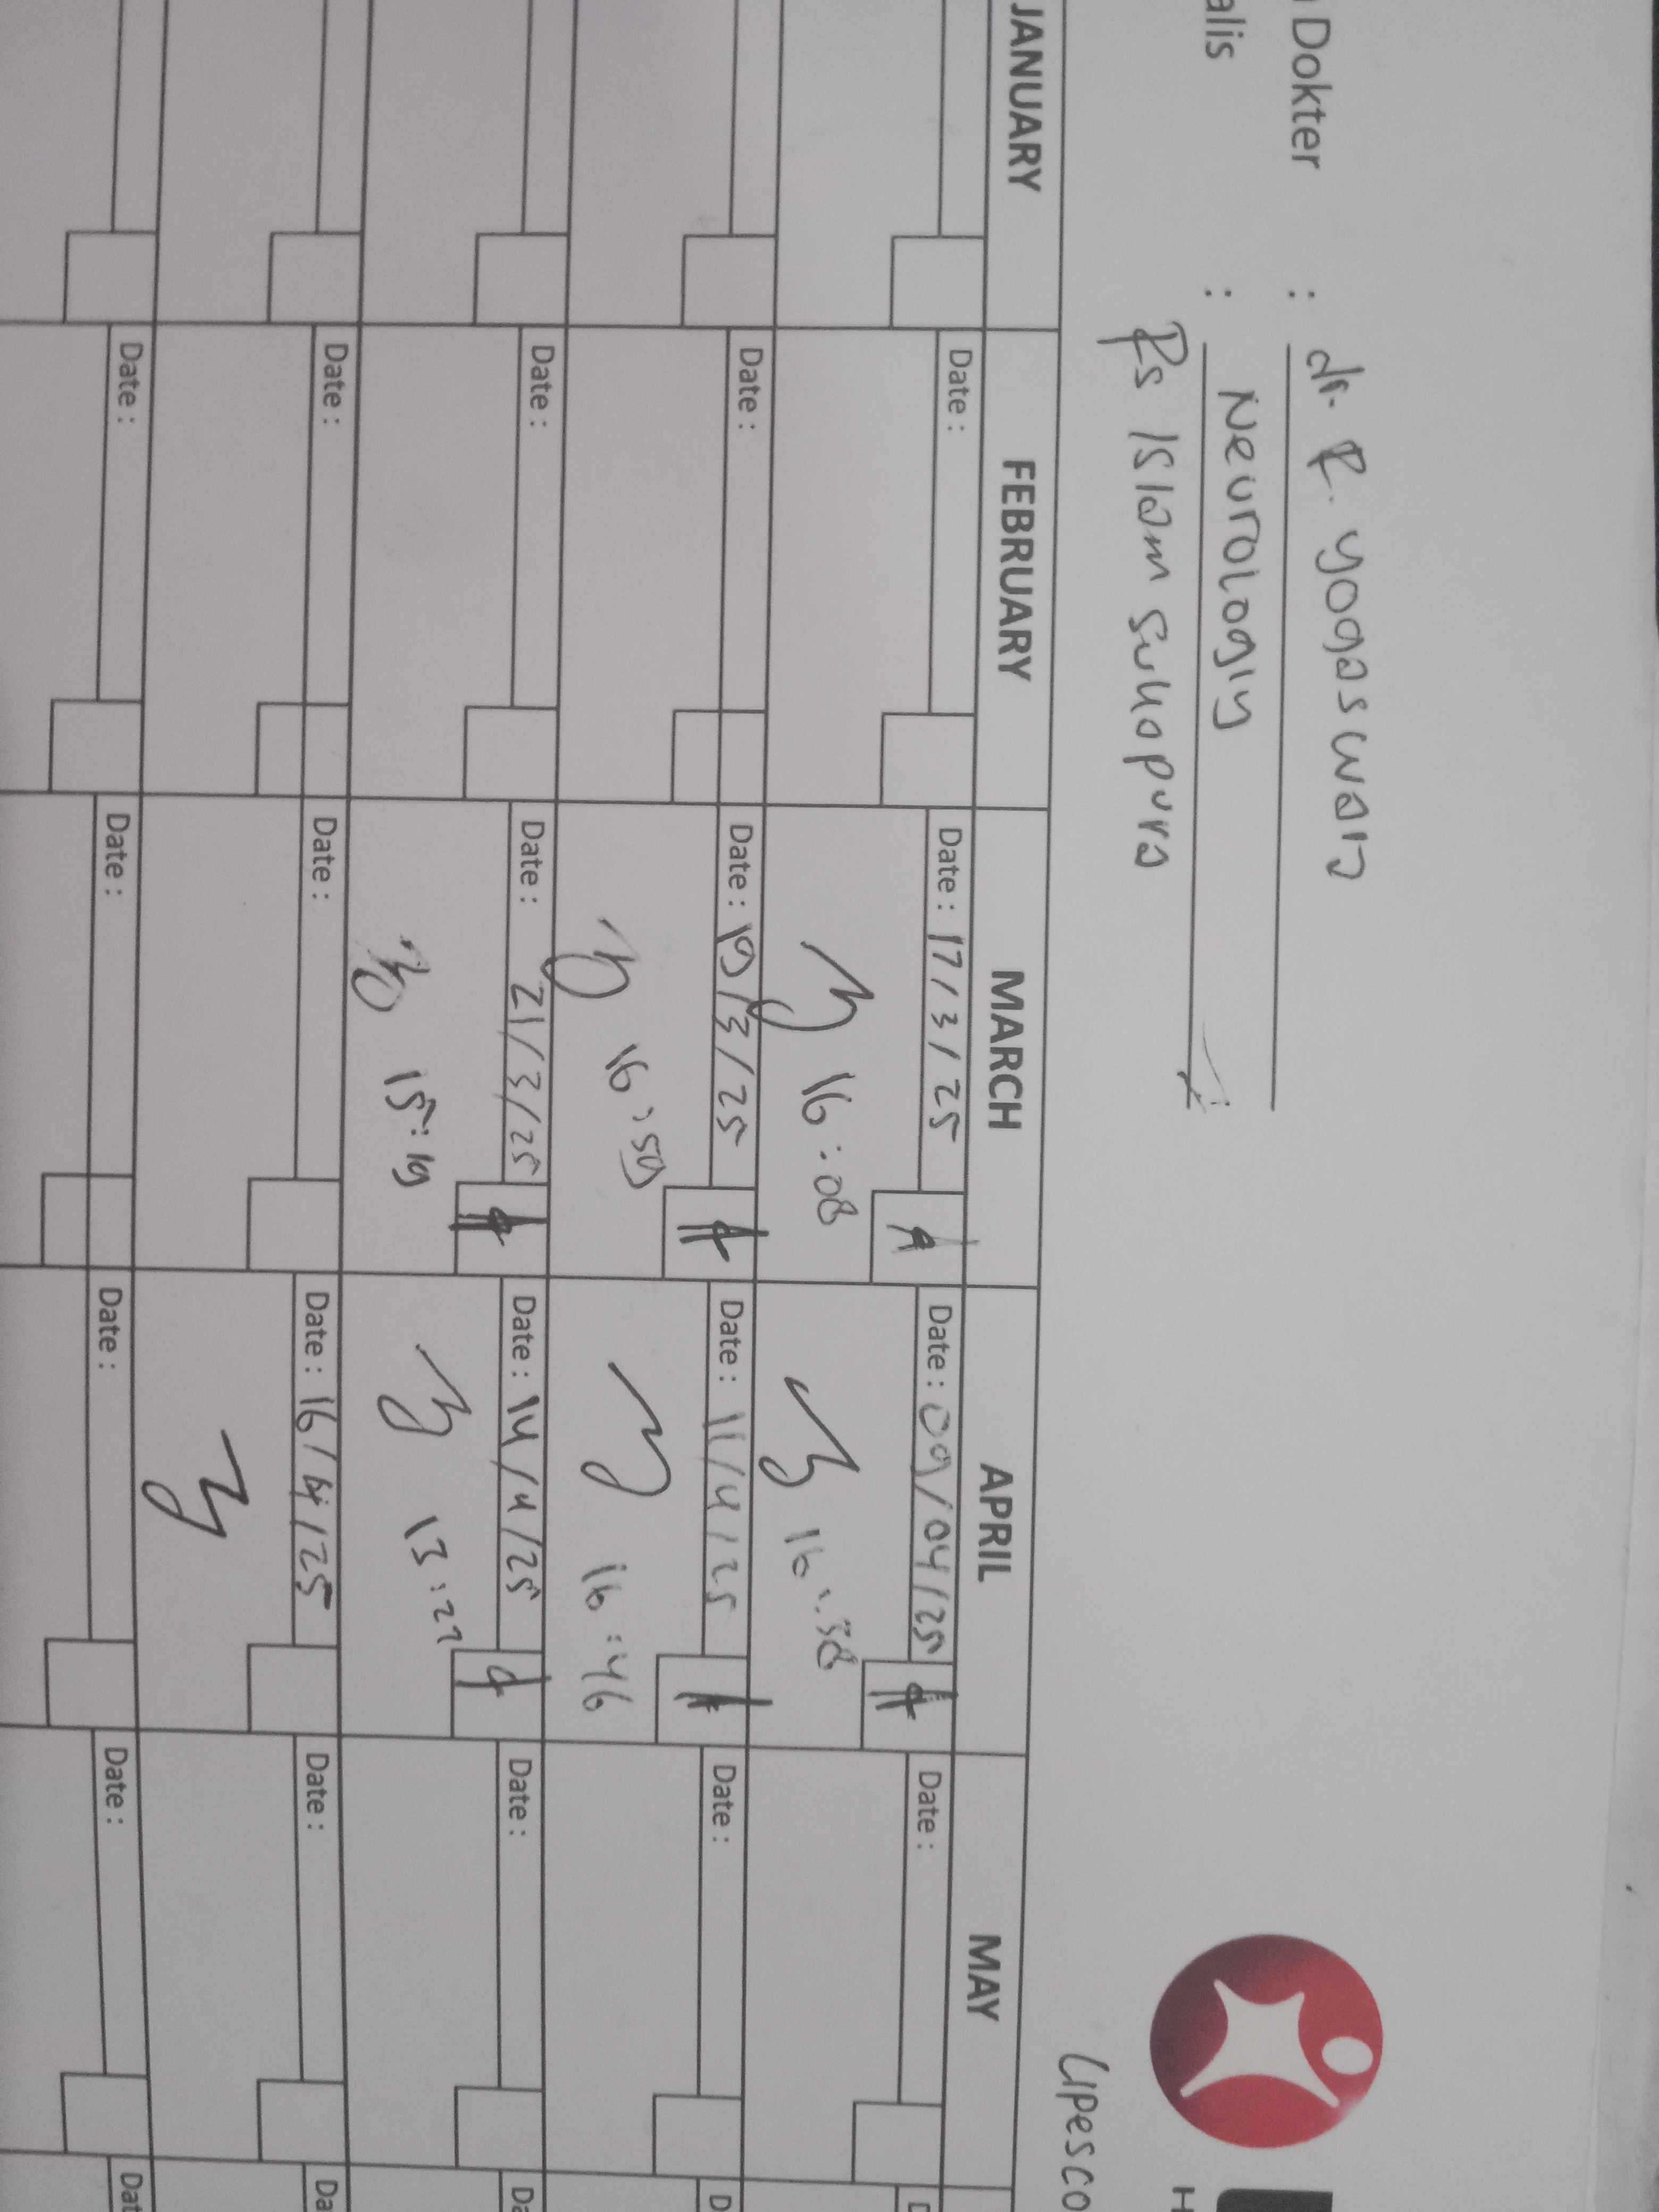 Dokter : dr. R. yogaswara
alis : Neurology
Rs Islam sukapura
Lipesco
H
JANUARY FEBRUARY MARCH APRIL MAY
Date : Date : 17/3/25 Date : 09/04/25 Date : D
16:08 16:38
Date : Date : 19/3/25 Date : 11/4/25 Date : D
16:59 16:46
Date : Date : 21/3/25 Date : 14/4/25 Date : Da
15:19 13:27
Date : Date : Date : 16/4/25 Date : Da
Date : Date : Date : Date : Dat